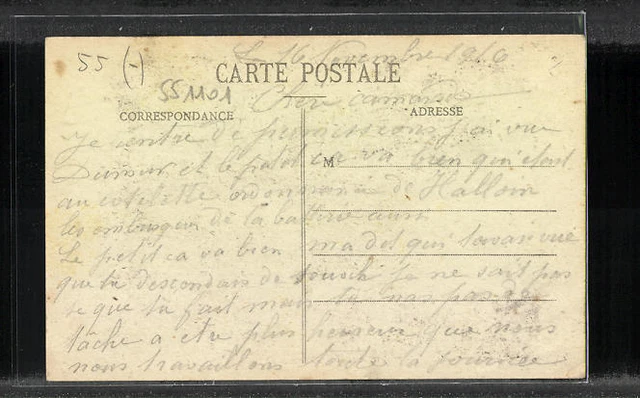 55 (-)
Le 16 Novembre 1916
CARTE POSTALE
551101
Cher camarade
CORRESPONDANCE
ADRESSE
Je rentre de permissions j'ai vu
M
Dumur et le petit ça va bien qu'étant
au cotelette ordonnance de Halloin
les embusqués de la batterie aussi
Le petit ça va bien m'a dit qu'il t'avait vu
que tu descendais de Je ne sait pas
se que tu fait mais tu nas pas de
tâche a etre plus heureux que nous
nous travaillons toute la journée